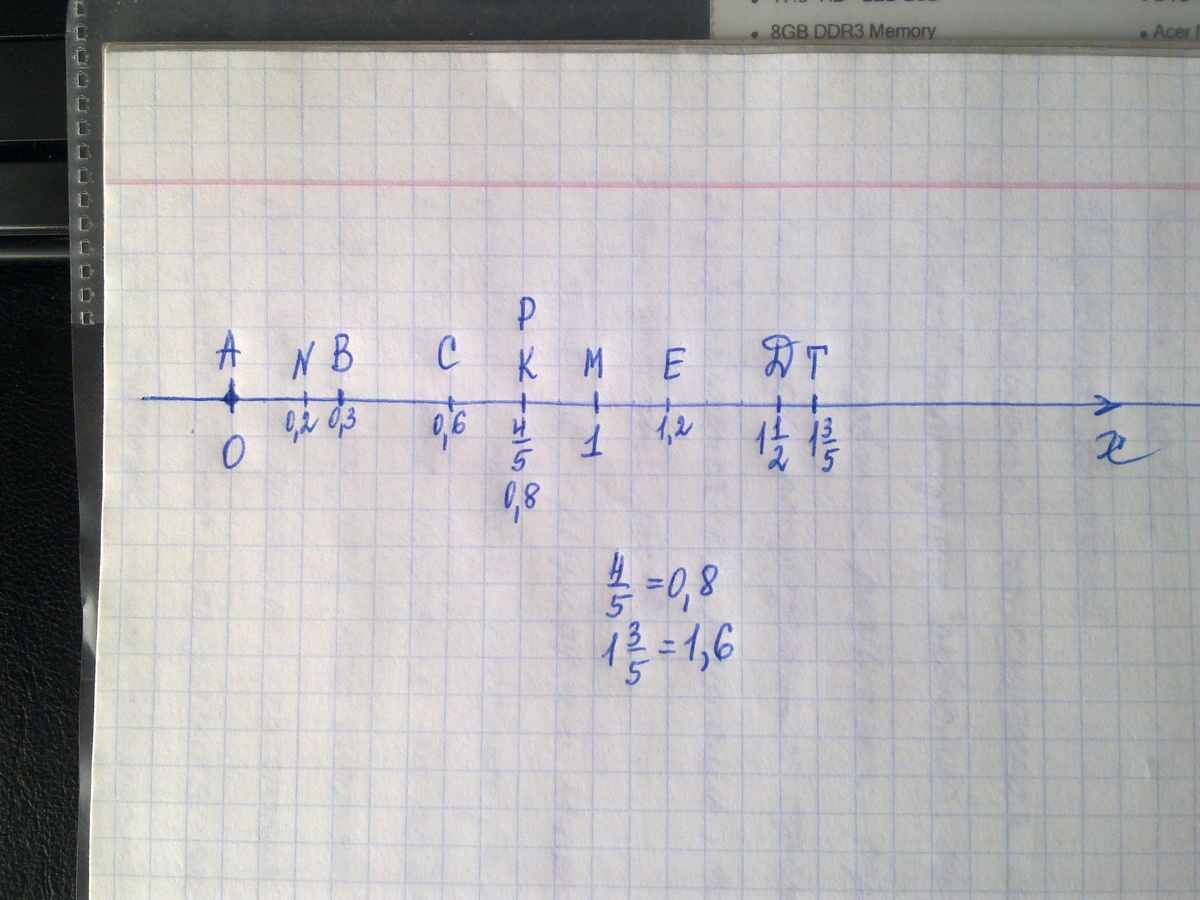 8GB DDR3 Memory • Acer
P
A N B C K M E D T
0 0,2 0,3 0,6 4/5 1 1,2 1 1/2 1 3/5 x
0,8
4/5 = 0,8
1 3/5 = 1,6